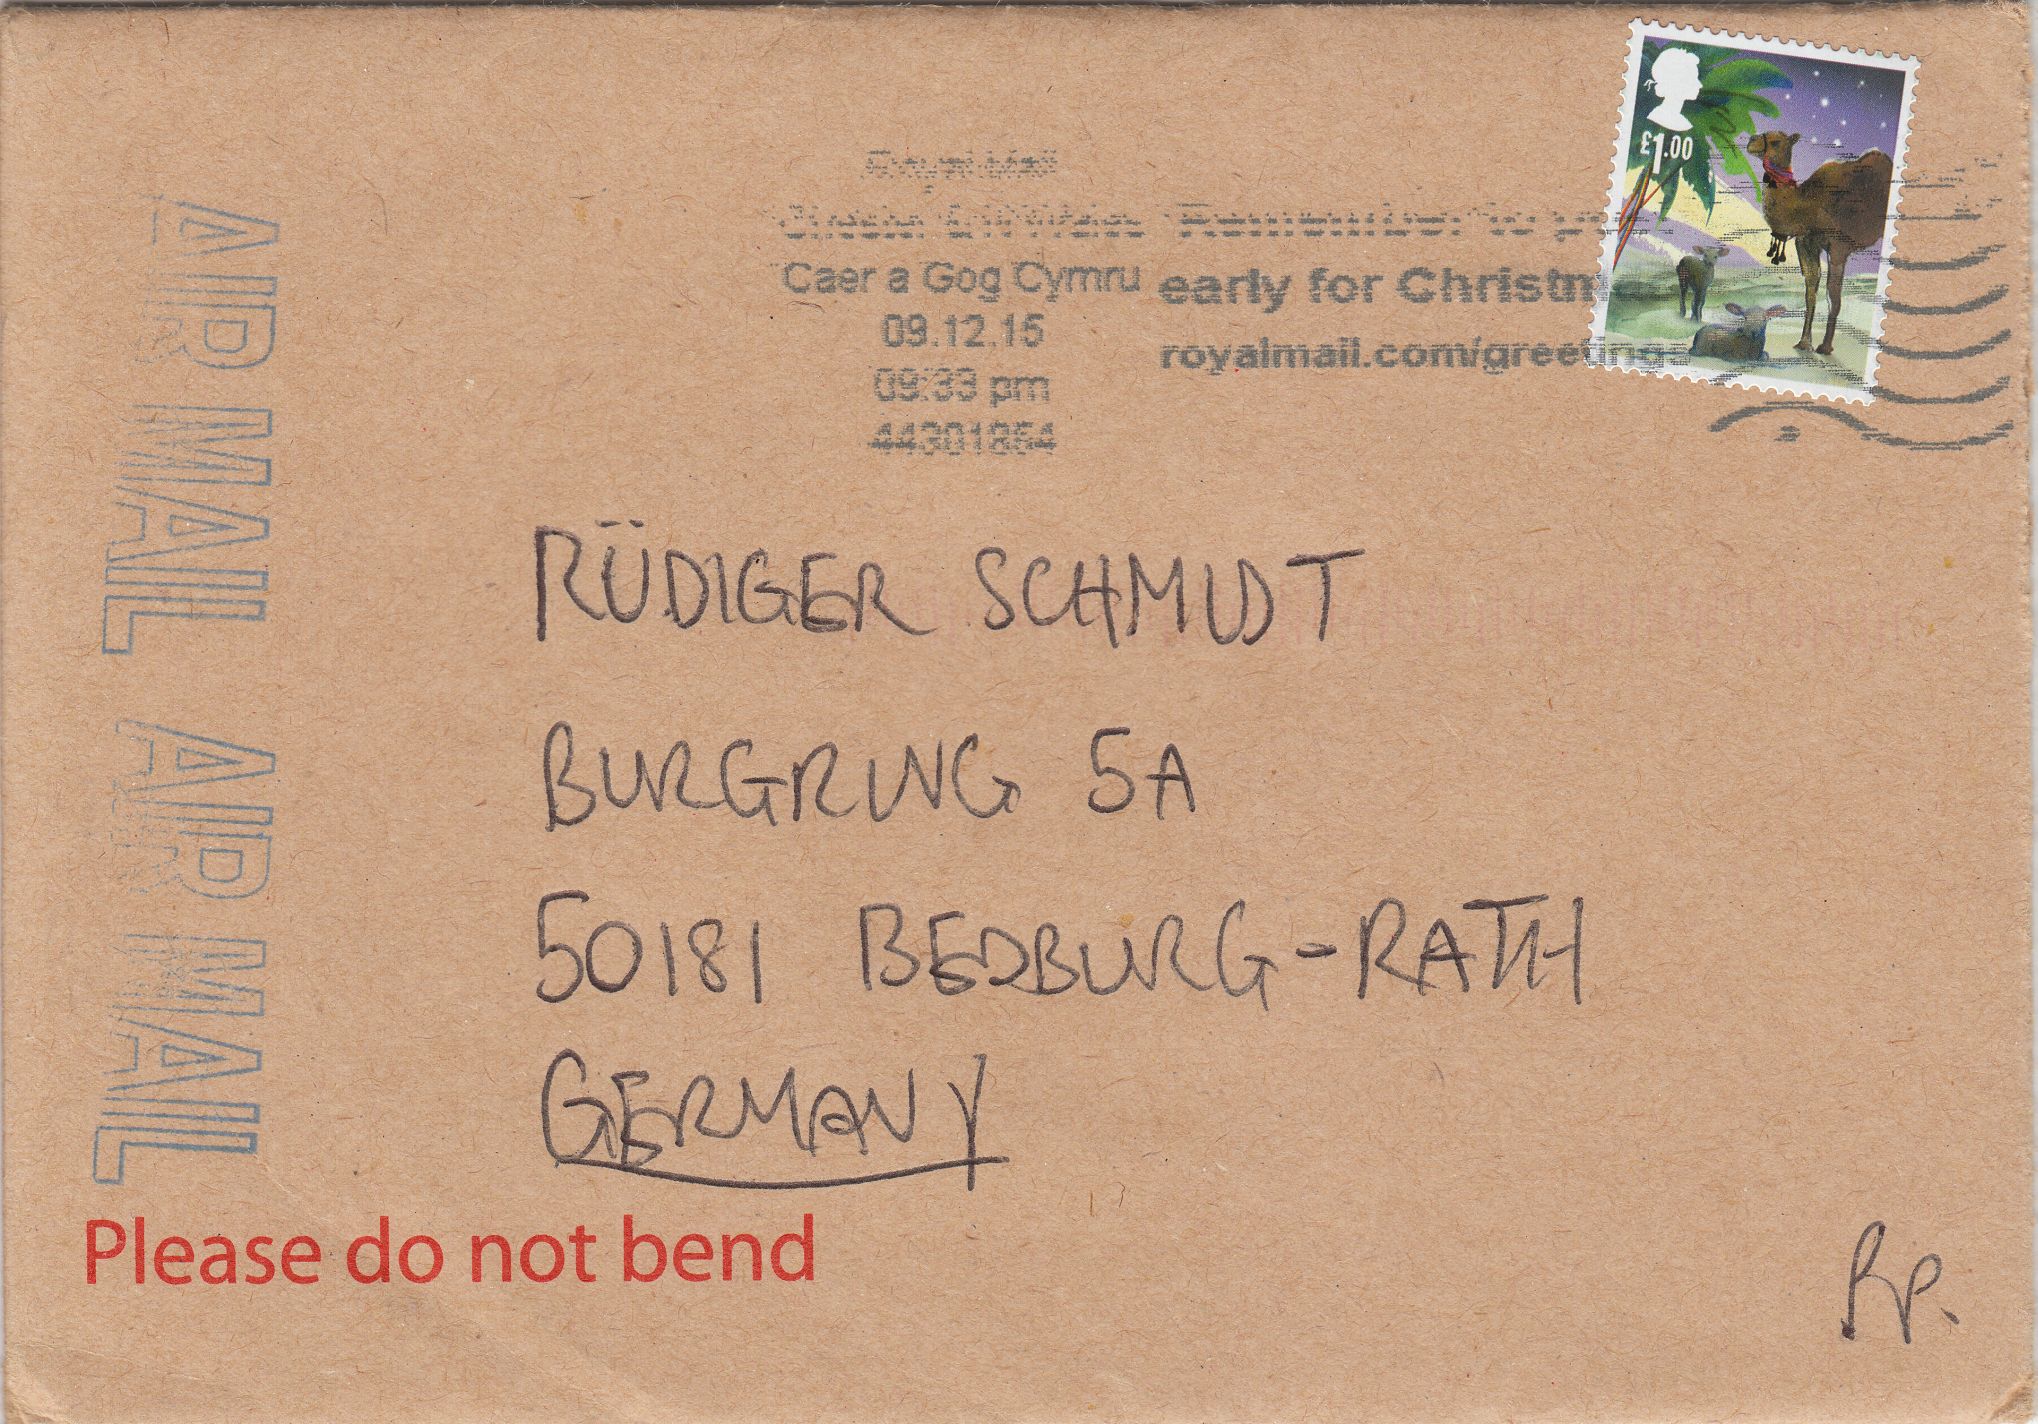 AIR MAIL AIR MAIL
Royal Mail
Chester & N Wales
Caer a Gog Cymru
09.12.15
09:33 pm
44301854
Remember to
early for Christmas
royalmail.com/greetings
£1.00
RÜDIGER SCHMIDT
BURGRING 5A
50181 BEDBURG-RATH
GERMANY
Please do not bend
RP.